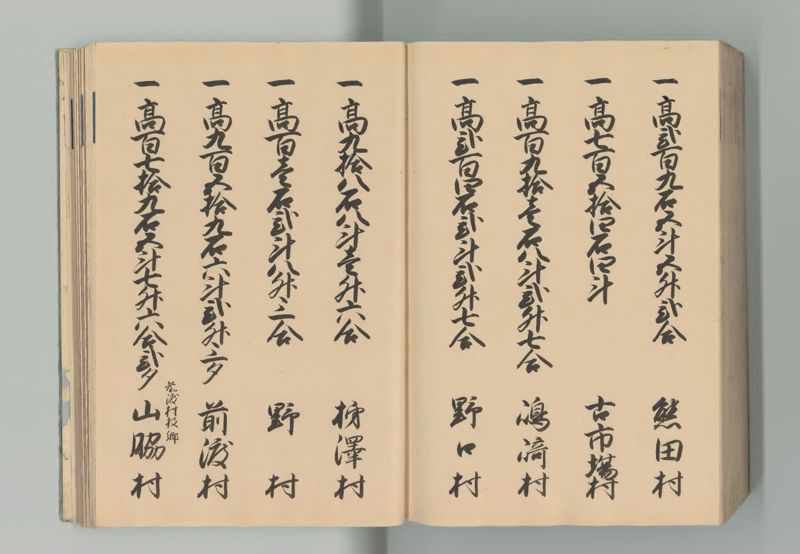 一高弐百九石五斗五升弐合　熊田村
一高七百五拾四石四斗　古市場村
一高百九拾壱石八斗弐升七合　嶋﨑村
一高弐百四石弐斗弐升七合　野口村
一高九拾八石八斗壱升六合　栁澤村
一高百壱石弐斗八升三合　野村
一高九百五拾九石六斗弐升三夕　前渡村
一高百七拾九石五斗七升六合弐夕　前渡村枝郷　山脇村